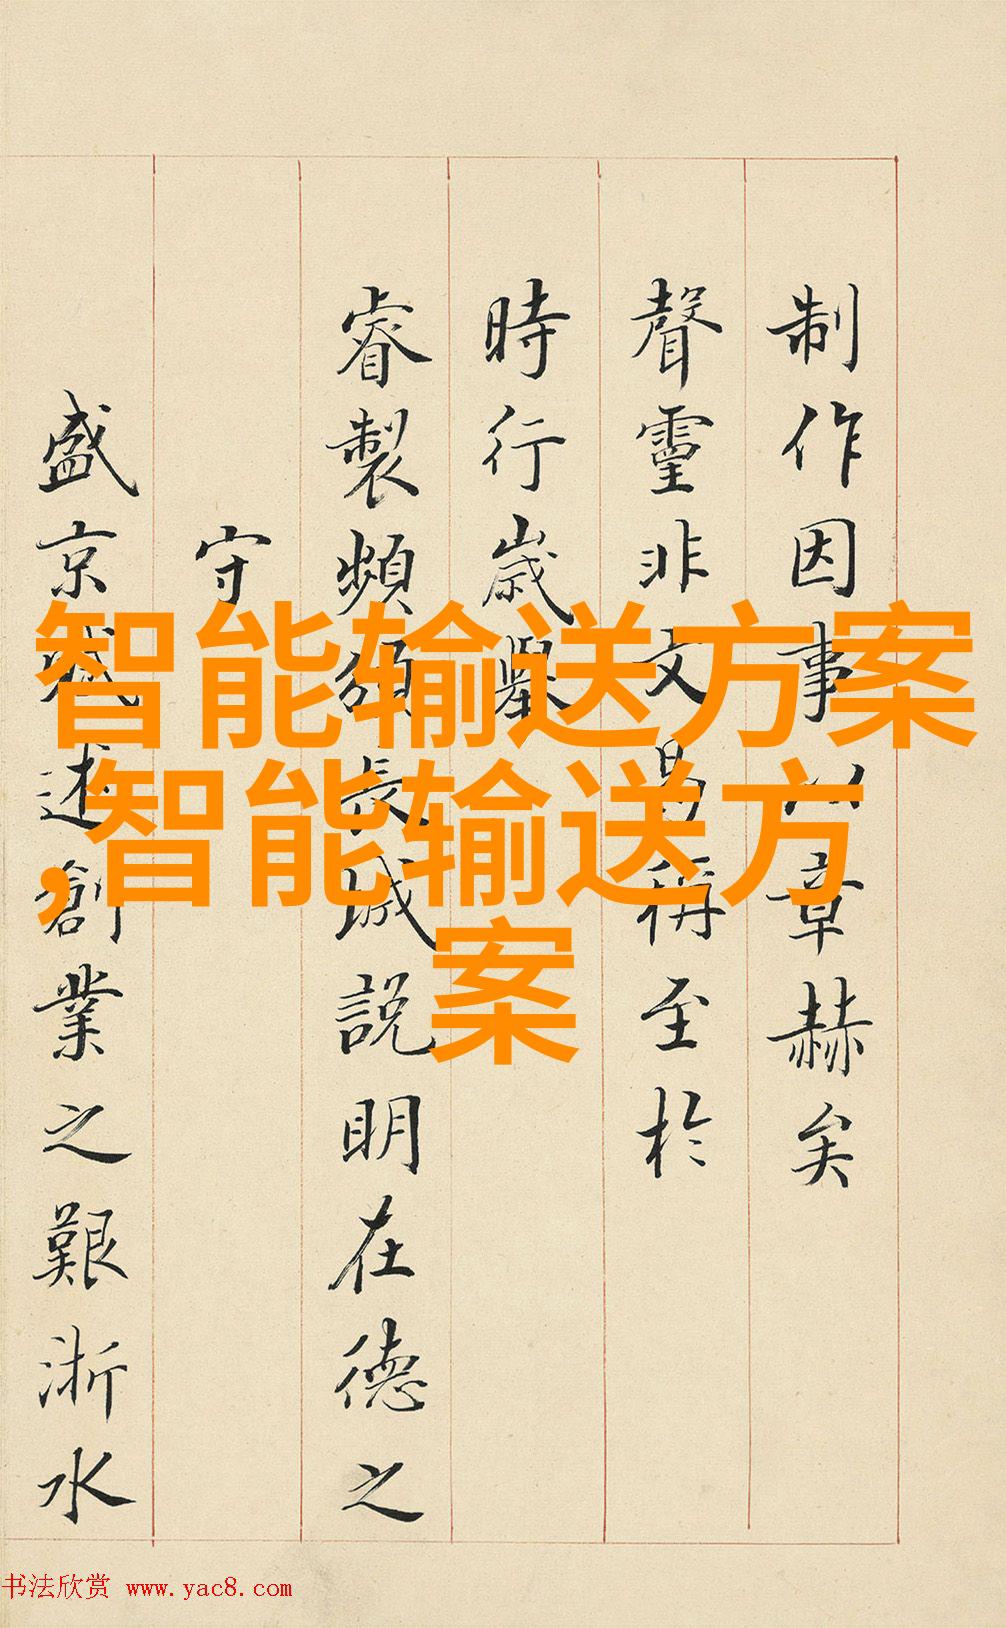 制作因事以章赫矣
聲靈非文曷稱至於
時行歲舉
睿製頻頒長城説明在德之
守
盛京賦述創業之艱浙水
智能输送方案
,智能输送方
案
书法欣赏 www.yac8.com